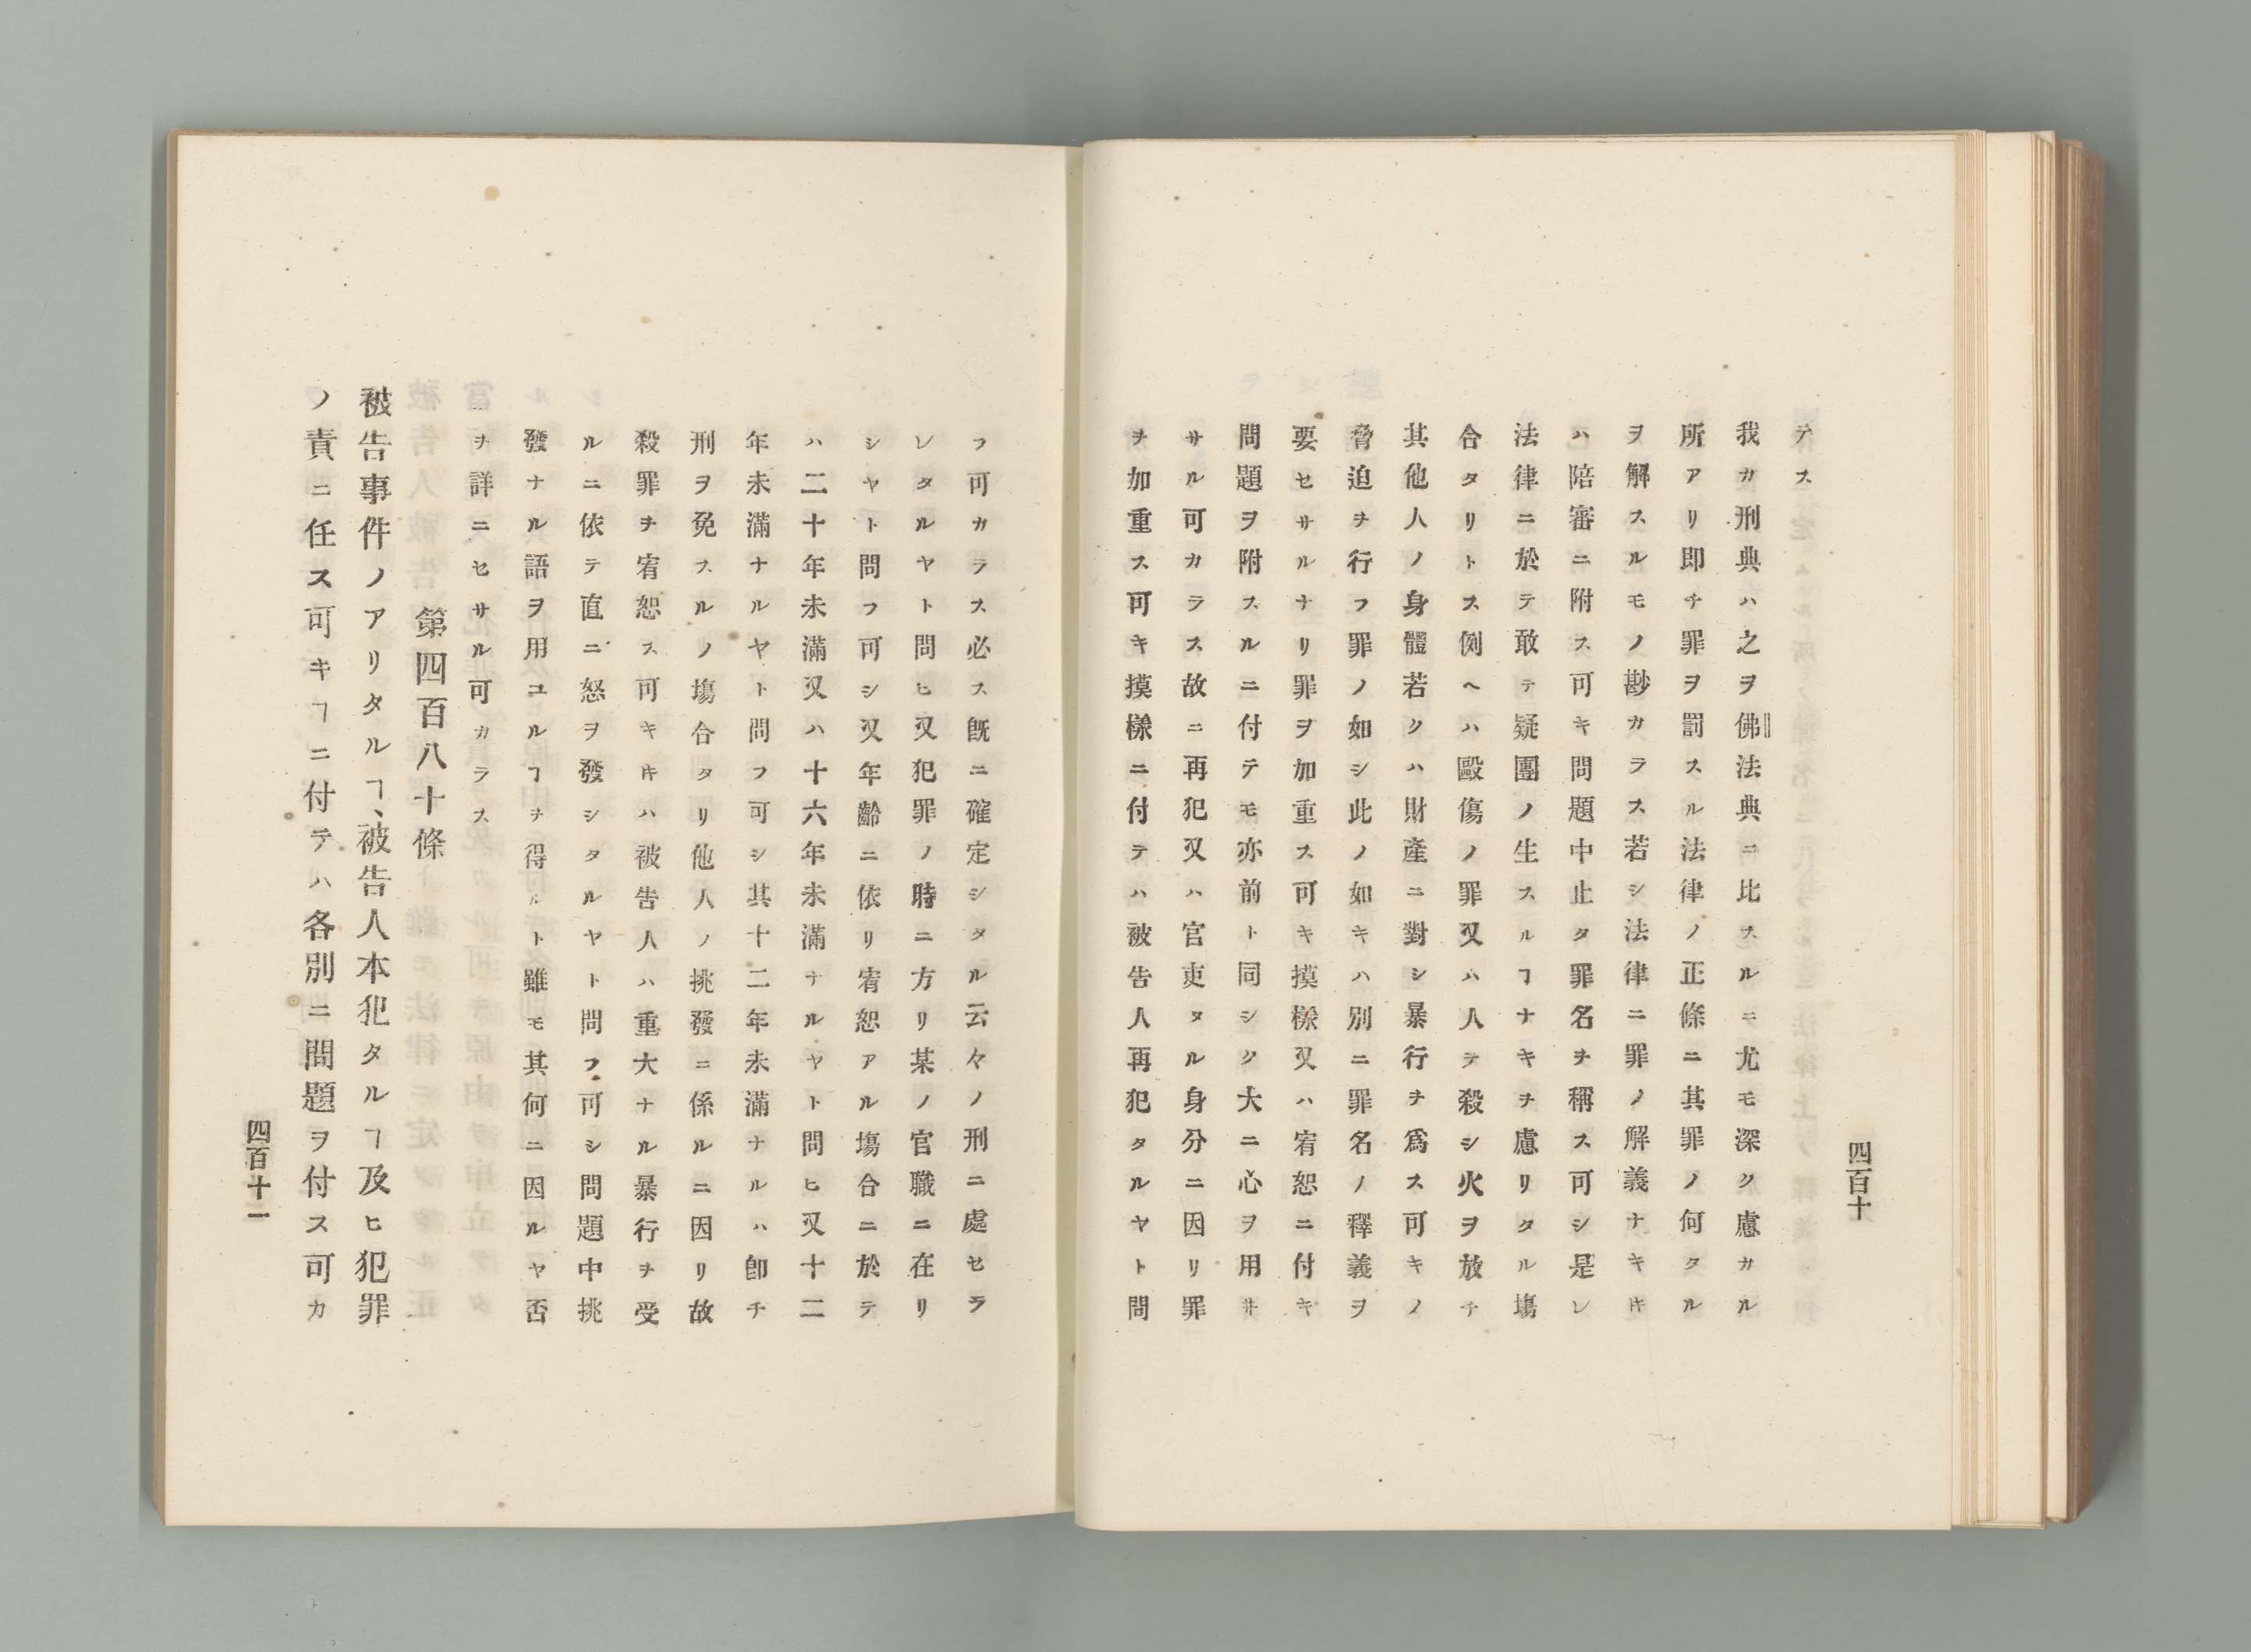 四百十
テス
我カ刑典ハ之ヲ佛法典ニ比スルニ尤モ深ク慮カル
所アリ即チ罪ヲ罰スル法律ノ正條ニ其罪ノ何タル
ヲ解スルモノ尠カラス若シ法律ニ罪ノ解義ナキキ
ハ陪審ニ附ス可キ問題中止タ罪名ヲ稱ス可シ是レ
法律ニ於テ敢テ疑團ノ生スルヿナキヲ慮リタル塲
合タリトス例ヘハ毆傷ノ罪又ハ人ヲ殺シ火ヲ放チ
其他人ノ身體若クハ財產ニ對シ暴行ヲ爲ス可キノ
脅迫ヲ行フ罪ノ如シ此ノ如キハ別ニ罪名ノ釋義ヲ
要セサルナリ罪ヲ加重ス可キ摸樣又ハ宥恕ニ付キ
問題ヲ附スルニ付テモ亦前ト同シク大ニ心ヲ用井
サル可カラス故ニ再犯又ハ官吏タル身分ニ因リ罪
ヲ加重ス可キ摸樣ニ付テハ被告人再犯タルヤト問
フ可カラス必ス既ニ確定シタル云々ノ刑ニ處セラ
レタルヤト問ヒ又犯罪ノ時ニ方リ某ノ官職ニ在リ
シヤト問フ可シ又年齡ニ依リ宥恕アル塲合ニ於テ
ハ二十年未滿又ハ十六年未滿ナルヤト問ヒ又十二
年未滿ナルヤト問フ可シ其十二年未滿ナルハ卽チ
刑ヲ免スルノ塲合タリ他人ノ挑發ニ係ルニ因リ故
殺罪ヲ宥恕ス可キキハ被告人ハ重大ナル暴行ヲ受
ルニ依テ直ニ怒ヲ發シタルヤト問フ可シ問題中挑
發ナル語ヲ用ユルヿヲ得ルト雖モ其何ニ因ルヤ否
ヲ詳ニセサル可カラス
第四百八十條
被告事件ノアリタルヿ、被告人本犯タルヿ及ヒ犯罪
ノ責ニ任ス可キヿニ付テハ各別ニ問題ヲ付ス可カ
四百十一